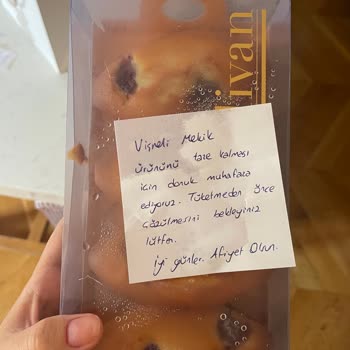 ivan
Vişneli Mekik
ürününü taze kalması
için donuk muhafaza
ediyoruz. Tüketmeden önce
çözülmesini bekleyiniz
lütfen.
İyi günler. Afiyet Olsun.